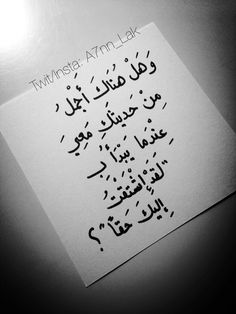 Twit/Insta: A7nn_Lak
وَهَل هُنَاكَ أَجْمَلُ
مِنْ حَدِيثِكَ مَعِيَ
عِنْدِمَا يَبْدَأُ بِ
"لَقَدْ إِشْتَقْتُ
إِلَيكَ حَقًا"؟